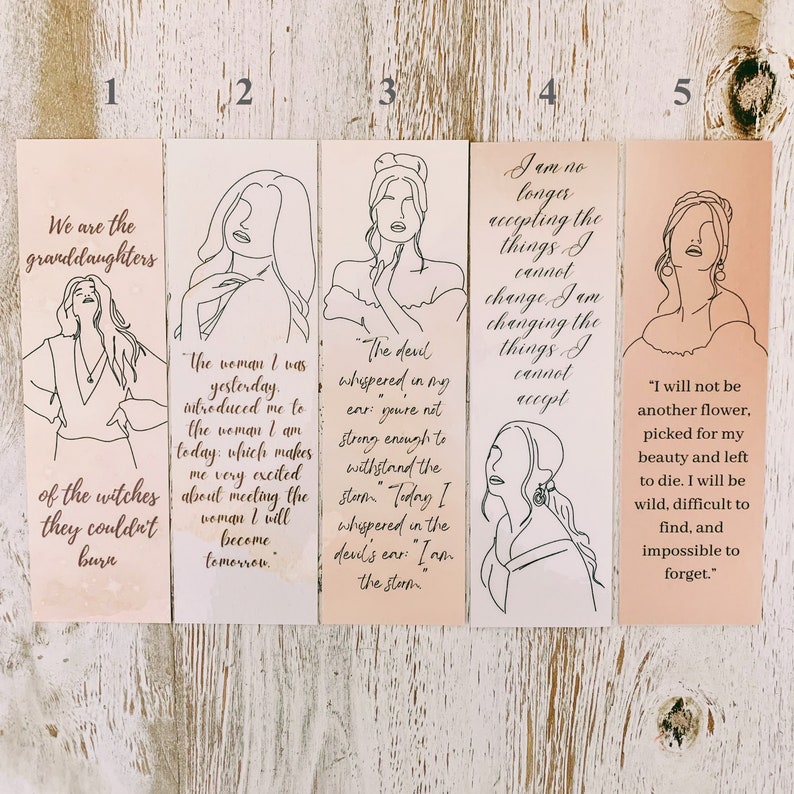 1 2 3 4 5
We are the
granddaughters
of the witches
they couldn't
burn
"the woman I was
yesterday,
introduced me to
the woman I am
today; which makes
me very excited
about meeting the
woman I will
become
tomorrow."
"The devil
whispered in my
ear: "you're not
strong enough to
withstand the
storm." Today I
whispered in the
devil's ear: "I am
the storm."
I am no
longer
accepting the
things I
cannot
change, I am
changing the
things I
cannot
accept
"I will not be
another flower,
picked for my
beauty and left
to die. I will be
wild, difficult to
find, and
impossible to
forget."